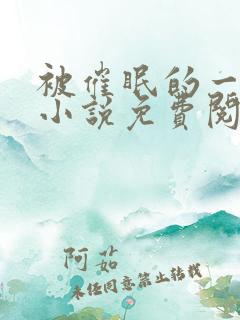 被催眠的一
小说免费阅
阿茹
未经同意禁止转载